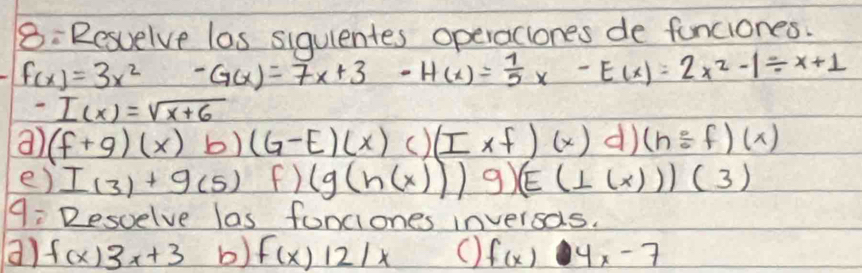 8= Resuelve las siguientes operaciones de funciones.
- f(x) = 3x² - G(x) = 7x+3 - H(x) = 1/5 x - E(x) = 2x² - 1 ÷ x+1
- I(x) = √x+6
a) (f+g) (x) b) (G-E) (x) c) (I x f) (x) d) (h ÷ f) (x)
e) I(3) + g(5) f) (g(h(x))) g) (E (I (x))) (3)
9= Resuelve las funciones inversas.
a) f(x) 3x+3 b) f(x) 12/x c) f(x) 4x-7